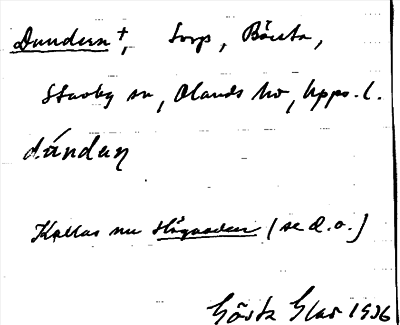 Dundern +, torp, Börsta,
Stavby sn, Olands hd, Upps. l.
dúndan
Kallas nu Högåsen (se d. o.)
Gösta Glas 1936